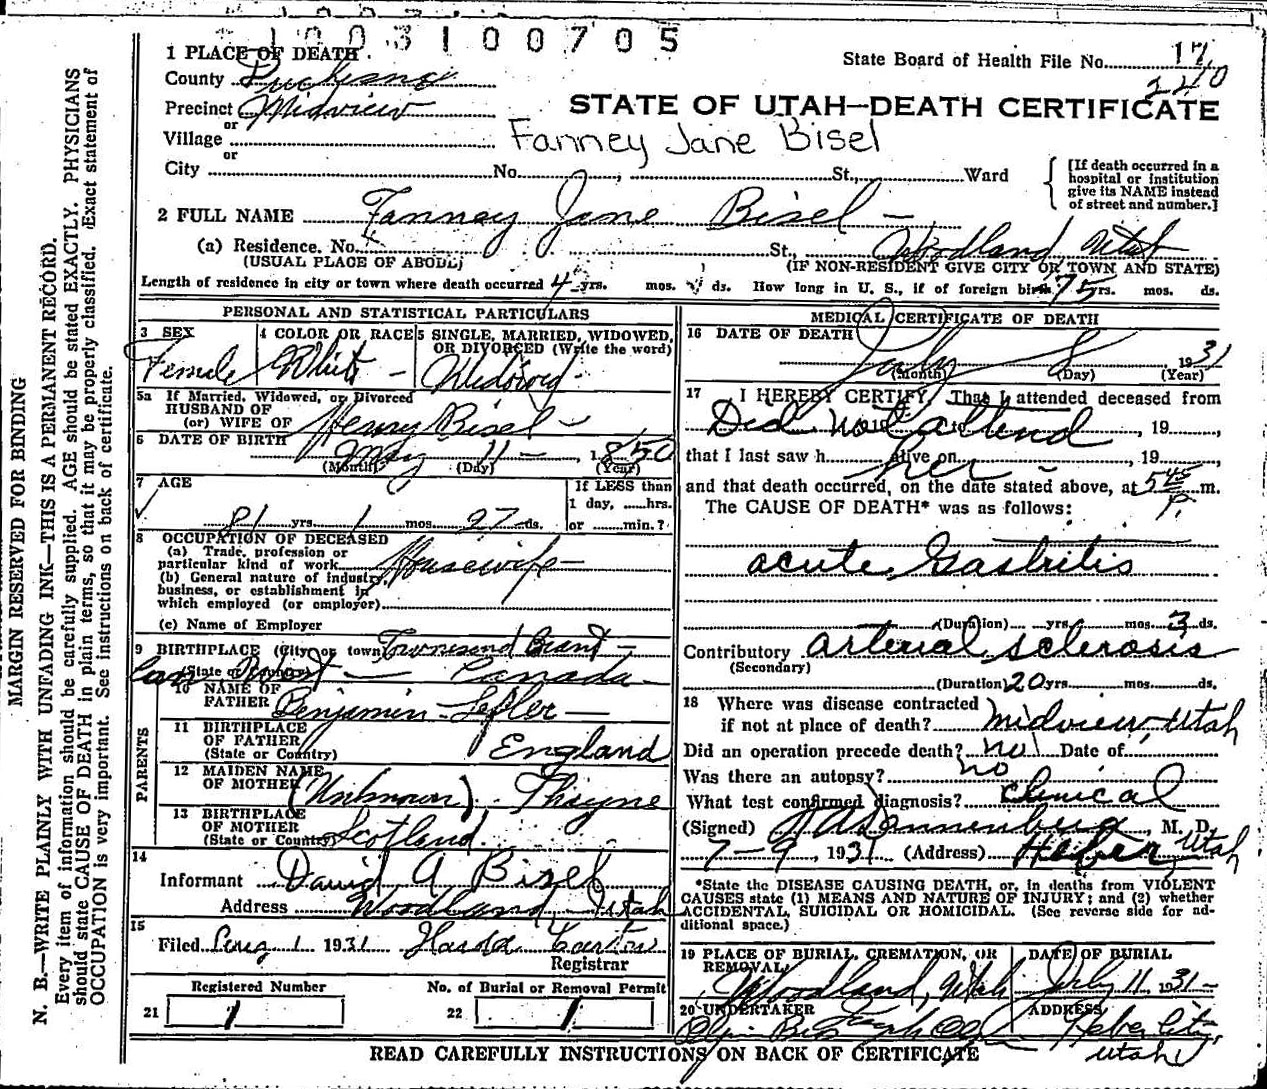 1003100705
1 PLACE OF DEATH
State Board of Health File No. 17
240
County Duchesne
Precinct Midview
or
Village
or
City No. , St., Ward
STATE OF UTAH—DEATH CERTIFICATE
Fanney Jane Bisel
[If death occurred in a
hospital or institution
give its NAME instead
of street and number.]
2 FULL NAME Fanney Jane Bisel
(a) Residence. No. St., Woodland, Utah
(USUAL PLACE OF ABODE) (IF NON-RESIDENT GIVE CITY OR TOWN AND STATE)
Length of residence in city or town where death occurred 4 yrs. mos. ds. How long in U. S., if of foreign birth 75 yrs. mos. ds.
PERSONAL AND STATISTICAL PARTICULARS
3 SEX
Female
4 COLOR OR RACE
White
5 SINGLE, MARRIED, WIDOWED,
OR DIVORCED (Write the word)
Widowed
5a If Married, Widowed, or Divorced
HUSBAND OF
(or) WIFE OF Henry Bisel
6 DATE OF BIRTH May 11 1850
(Month) (Day) (Year)
7 AGE
81 yrs. 1 mos. 27 ds.
If LESS than
1 day, hrs.
or min.?
8 OCCUPATION OF DECEASED
(a) Trade, profession or
particular kind of work Housewife
(b) General nature of industry,
business, or establishment in
which employed (or employer)
(c) Name of Employer
9 BIRTHPLACE (City or town) Townsend Brant
(State or Country) Canada
10 NAME OF
FATHER Benjamin Lefler
PARENTS
11 BIRTHPLACE
OF FATHER England
(State or Country)
12 MAIDEN NAME
OF MOTHER (Unknown) Thayne
13 BIRTHPLACE
OF MOTHER
(State or Country) Scotland
14
Informant David A Bisel
Address Woodland Utah
15
Filed Aug 1 1931
Registrar
Registered Number No. of Burial or Removal Permit
21 1 22 1
MEDICAL CERTIFICATE OF DEATH
16 DATE OF DEATH
July 8 1931
(Month) (Day) (Year)
17 I HEREBY CERTIFY, That I attended deceased from
Did not attend , 19 ,
that I last saw h alive on , 19 ,
her
and that death occurred, on the date stated above, at 5 45 m.
P.
The CAUSE OF DEATH* was as follows:
acute Gastritis
(Duration) yrs. mos. 3 ds.
Contributory arterial sclerosis
(Secondary)
(Duration) 20 yrs. mos. ds.
18 Where was disease contracted
if not at place of death? Midview, Utah
Did an operation precede death? no Date of
Was there an autopsy? no
What test confirmed diagnosis? Clinical
(Signed) , M. D.
7-9, 1931 (Address) Heber Utah
*State the DISEASE CAUSING DEATH, or, in deaths from VIOLENT
CAUSES state (1) MEANS AND NATURE OF INJURY; and (2) whether
ACCIDENTAL, SUICIDAL OR HOMICIDAL. (See reverse side for ad-
ditional space.)
19 PLACE OF BURIAL, CREMATION, OR
REMOVAL
Woodland, Utah
DATE OF BURIAL
July 11 1931
20 UNDERTAKER
ADDRESS
Heber City
Utah
READ CAREFULLY INSTRUCTIONS ON BACK OF CERTIFICATE
MARGIN RESERVED FOR BINDING
N. B.—WRITE PLAINLY WITH UNFADING INK—THIS IS A PERMANENT RECORD.
Every item of information should be carefully supplied. AGE should be stated EXACTLY. PHYSICIANS
should state CAUSE OF DEATH in plain terms, so that it may be properly classified. Exact statement of
OCCUPATION is very important. See instructions on back of certificate.